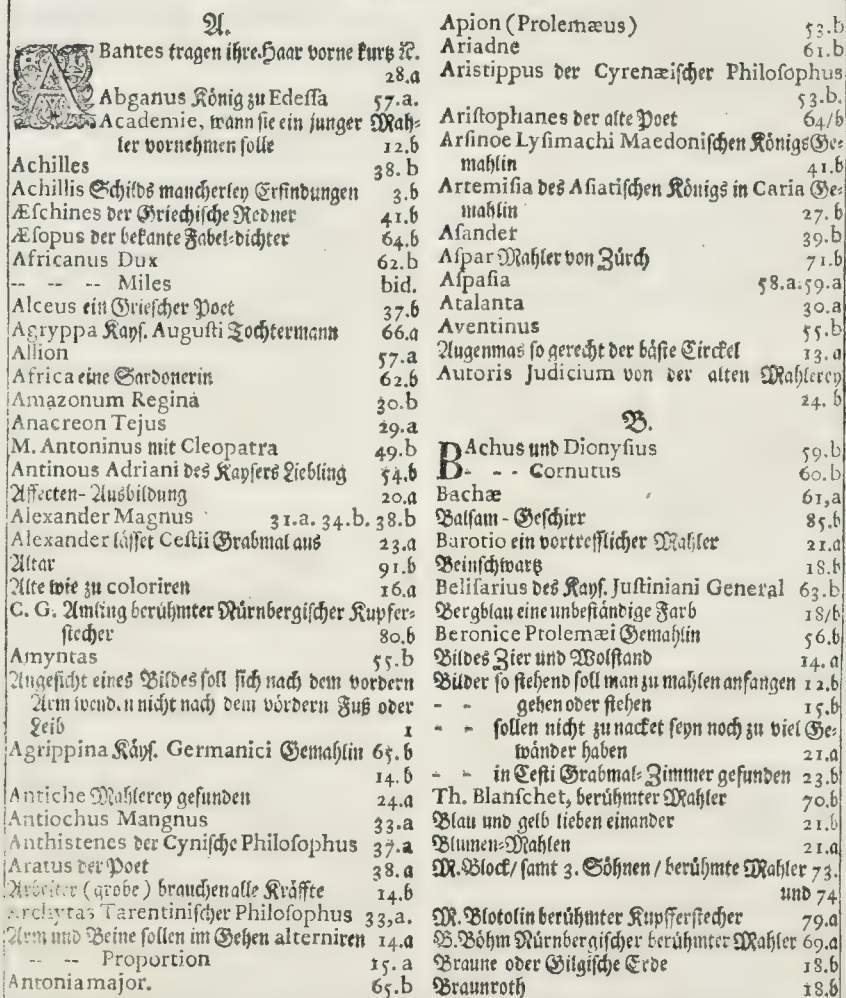 A.
ABantes tragen ihre Haar vorne kurtz ꝛc.
28.a
Abganus König zu Edessa 57.a.
Academie, wann sie ein junger Mah-
ler vornehmen solle 12.b
Achilles 38.b
Achillis Schilds mancherley Erfindungen 3.b
Æſchines der Griechische Redner 41.b
Æſopus der bekante Fabel-dichter 64.b
Africanus Dux 62.b
-- -- -- Miles bid.
Alceus ein Griescher Poet 37.b
Agryppa Kays. Augusti Tochtermann 66.a
Allion 57.a
Africa eine Sardonerin 62.b
Amazonum Regina 30.b
Anacreon Tejus 29.a
M. Antoninus mit Cleopatra 49.b
Antinous Adriani des Kaysers Liebling 54.b
Affecten-Ausbildung 20.a
Alexander Magnus 31.a. 34.b. 38.b
Alexander lässet Cestii Grabmal aus 23.a
Altar 91.b
Alte wie zu coloriren 16.a
C. G. Amling berühmter Nürnbergischer Kupfer-
stecher 80.b
Amyntas 55.b
Angesicht eines Bildes soll sich nach dem vordern
Arm wend.n nicht nach dem vördern Fuß oder
Leib 1
Agrippina Käys. Germanici Gemahlin 65.b
14.b
Antiche Mahlerey gefunden 24.a
Antiochus Mangnus 33.a
Anthistenes der Cynische Philosophus 37.a
Aratus der Poet 38.a
Arbeiter (grobe) brauchen alle Kräffte 14.b
Archytas Tarentinischer Philosophus 33,a.
Arm und Beine sollen im Gehen alterniren 14.a
-- -- Proportion 15.a
Antonia major. 65.b
Apion (Prolemæus) 53.b
Ariadne 61.b
Aristippus der Cyrenæischer Philosophus
53.b.
Aristophanes der alte Poet 64/b
Arsinoe Lysimachi Maedonischen Königs Ge-
mahlin 41.b
Artemisia des Asiatischen Königs in Caria Ge-
mahlin 27.b
Asander 39.b
Aspar Mahler von Zürch 71.b
Aspasia 58.a.59.a
Atalanta 30.a
Aventinus 55.b
Augenmas so gerecht der bäste Circkel 13.a
Autoris Judicium von der alten Mahlerey
24.b
B.
BAchus und Dionysius 59.b
- - - Cornutus 60.b
Bachæ 61,a
Balsam-Geschirr 85.b
Barotio ein vortrefflicher Mahler 21.a
Beinschwartz 18.b
Belisarius des Kays. Justiniani General 63.b
Bergblau eine unbeständige Farb 18/b
Beronice Ptolemæi Gemahlin 56.b
Bildes Zier und Wolstand 14.a
Bilder so stehend soll man zu mahlen anfangen 12.b
- - gehen oder stehen 15.b
- - sollen nicht zu nacket seyn noch zu viel Ge-
wänder haben 21.a
- - in Cesti Grabmal-Zimmer gefunden 23.b
Th. Blanschet, berühmter Mahler 70.b
Blau und gelb lieben einander 21.b
Blumen-Mahlen 21.a
M. Block/ samt 3. Söhnen / berühmte Mahler 73.
und 74
M. Blotolin berühmter Kupfferstecher 79.a
B. Böhm Nürnbergischer berühmter Mahler 69.a
Braune oder Gilgische Erde 18.b
Braunroth 18.b